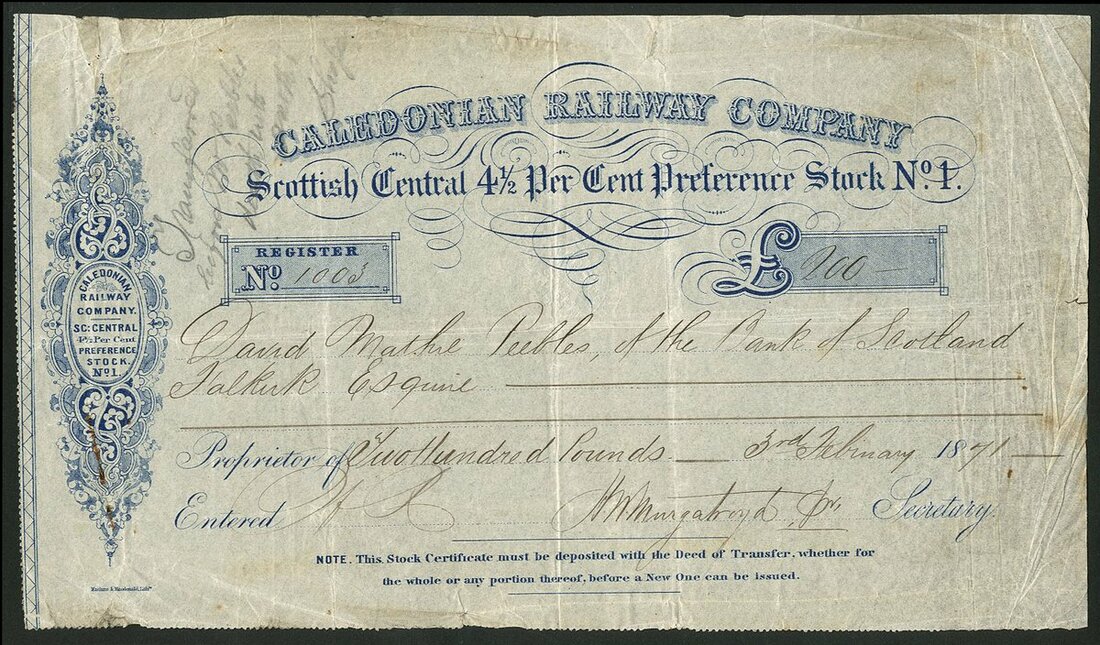 CALEDONIAN RAILWAY COMPANY
Scottish Central 4½ Per Cent Preference Stock No. 1.
REGISTER
No. 1003
£ 200
David Mathie Peebles, of the Bank of Scotland
Falkirk Esquire
Proprietor of Two Hundred Pounds 3rd February 1871
Entered
Secretary.
NOTE. This Stock Certificate must be deposited with the Deed of Transfer, whether for
the whole or any portion thereof, before a New One can be issued.
CALEDONIAN
RAILWAY
COMPANY.
SC: CENTRAL
4½ Per Cent
PREFERENCE
STOCK.
No 1.